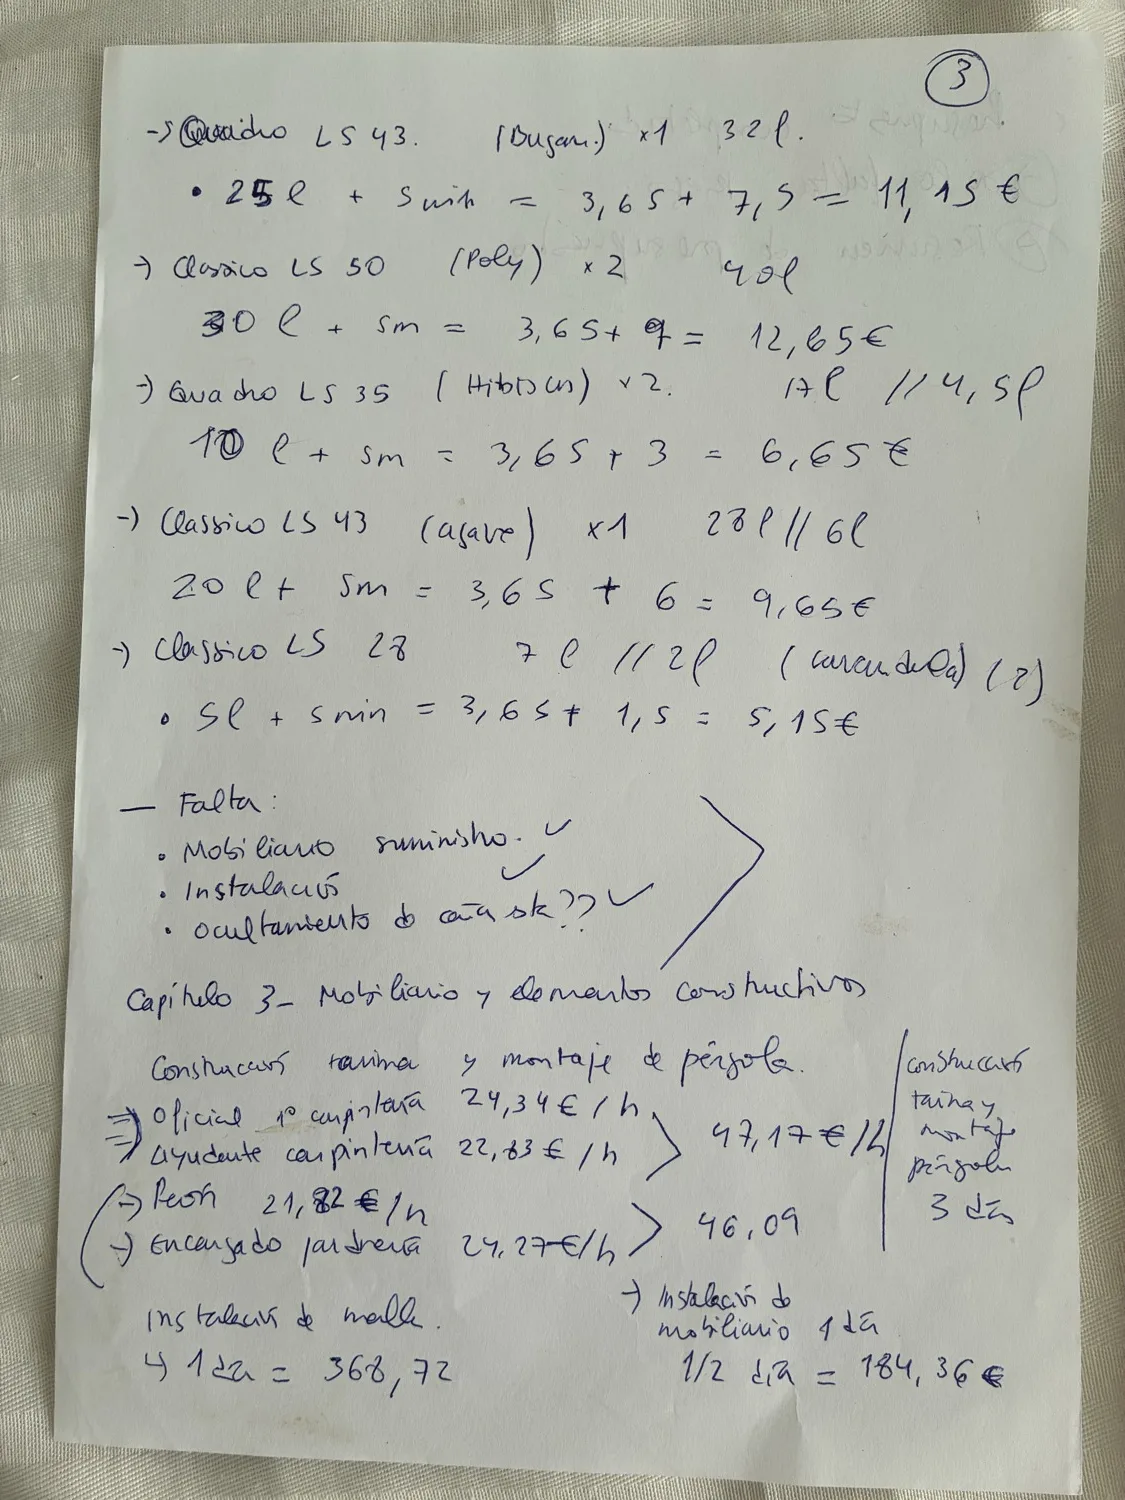 3
→ Quadro LS 43. (Bugam.) x1 32 l.
• 25 l + 5 min = 3,65 + 7,5 = 11,15 €
→ Classico LS 50 (Poly) x2 40l
30 l + 5m = 3,65 + 9 = 12,65 €
→ Quadro LS 35 (Hibiscus) x2. 17 l // 4,5 l
10 l + 5m = 3,65 + 3 = 6,65 €
→ Classico LS 43 (agave) x1 28 l // 6l
20 l + 5m = 3,65 + 6 = 9,65 €
→ Classico LS 28 7 l // 2 l (2)
• 5l + 5 min = 3,65 + 1,5 = 5,15 €
— Falta:
• Mobiliario suministro. ✓
• Instalación ✓
• Ocultamiento de ?? ✓
Capítulo 3- Mobiliario y elementos constructivos
Construcción tarima y montaje de pérgola.
⇒ Oficial 1º carpintería 24,34 € / h
⇒ Ayudante carpintería 22,83 € / h
47,17 € / h
construcción
tarima y
montaje
pérgola
3 días
→ Peón 21,82 € / h
→ Encargado jardinería 24,27 € / h
46,09
Instalación de malla.
↳ 1 día = 368,72
→ Instalación de
mobiliario 1 día
1/2 día = 184,36 €